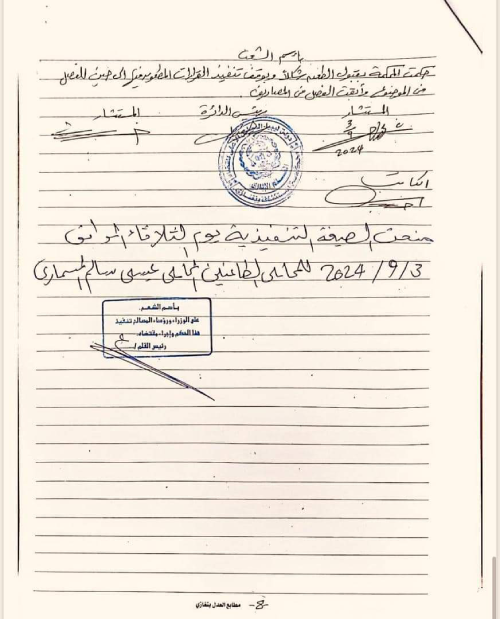 باسم الشعب
حكمت المحكمة بقبول الطعن شكلاً وبوقف تنفيذ القرارات المطعون فيها إلى حين الفصل
في الموضوع وأبقت الفصل في المصاريف
المستشار رئيس الدائرة المستشار
2024
الكاتب
منحت الصيغة التنفيذية يوم الثلاثاء الموافق
2024/9/3 للمحامي الطاعنين المحامي عيسى سالم المسماري
باسم الشعب
على الوزراء ورؤساء المصالح تنفيذ
هذا الحكم وإجراء مقتضاه.
رئيس القلم/
-8- مطابع العدل بنغازي